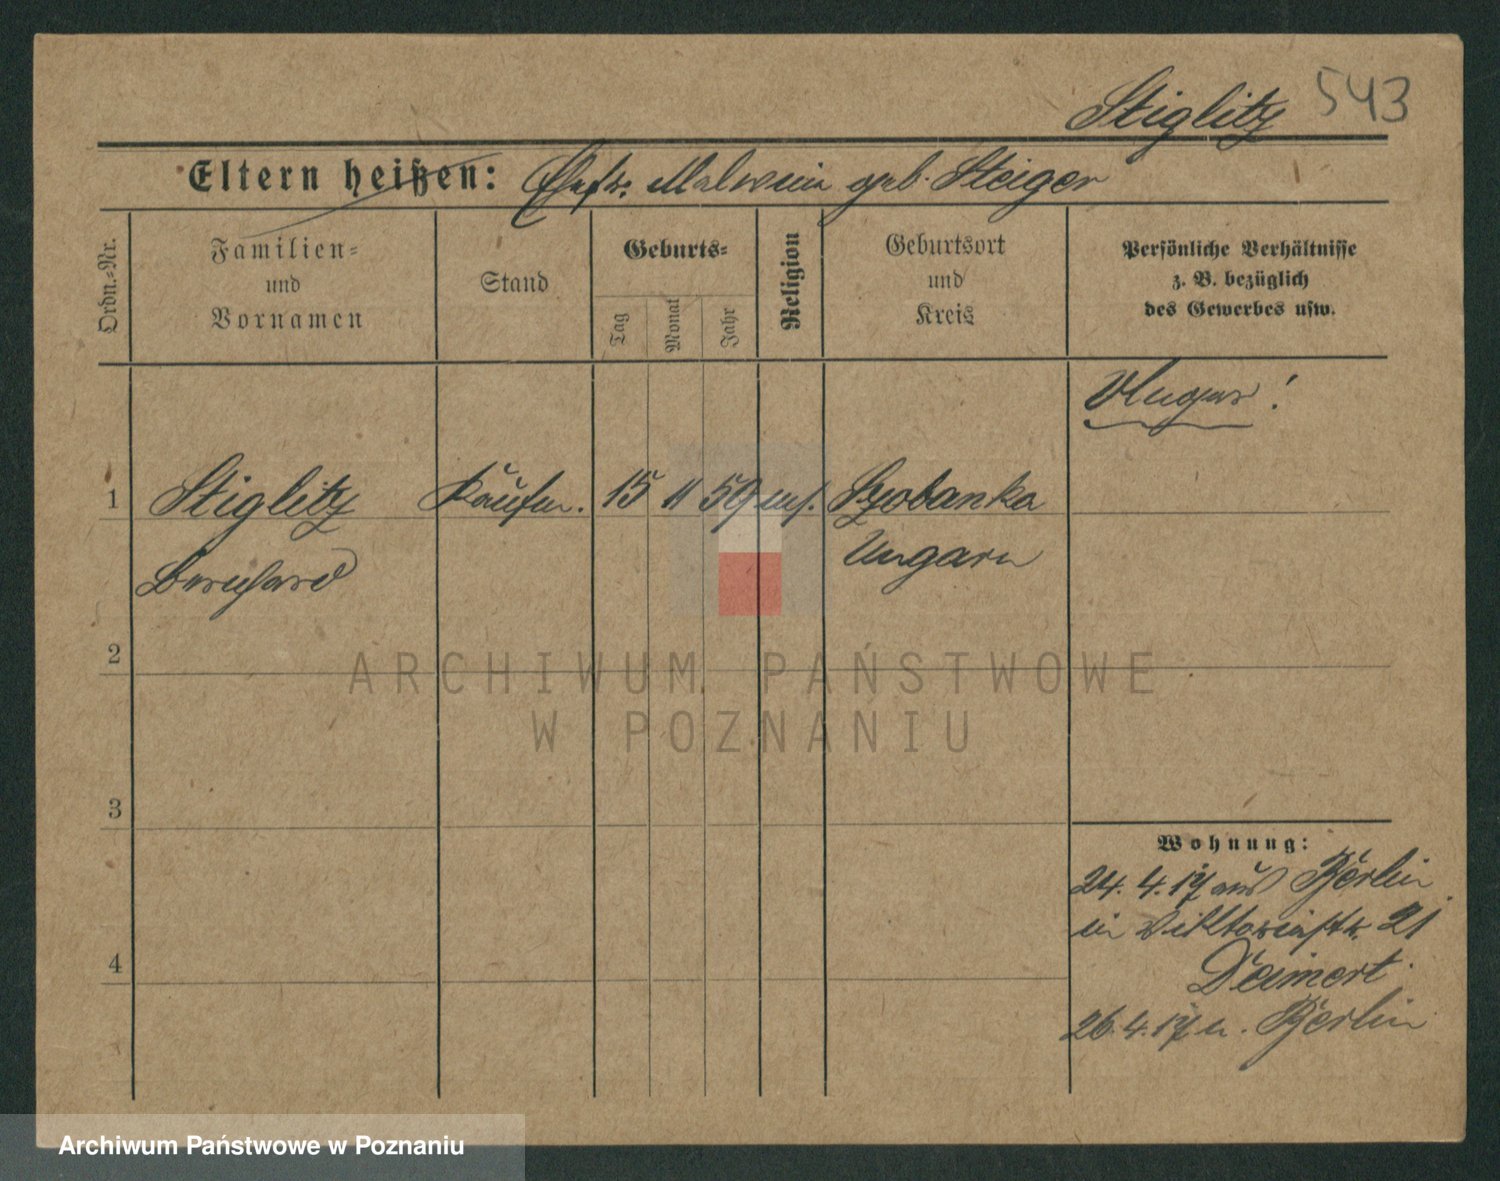 Stiglitz 543
Eltern heißen: Ehefr. Malwine geb. Steiger
Ordn.-Nr.
Familien-
und
Vornamen
Stand
Geburts-
Tag
Monat
Jahr
Religion
Geburtsort
und
Kreis
Persönliche Verhältnisse
z. B. bezüglich
des Gewerbes usw.
Ungar!
1 Stiglitz Kaufm. 15 11 59 Szobanka
Bernhard Ungarn
2
3
4
Wohnung:
24. 4. 17 aus Berlin
in Viktoriastr. 21
Deimert
26. 4. 17 n. Berlin
ARCHIWUM PAŃSTWOWE
W POZNANIU
Archiwum Państwowe w Poznaniu